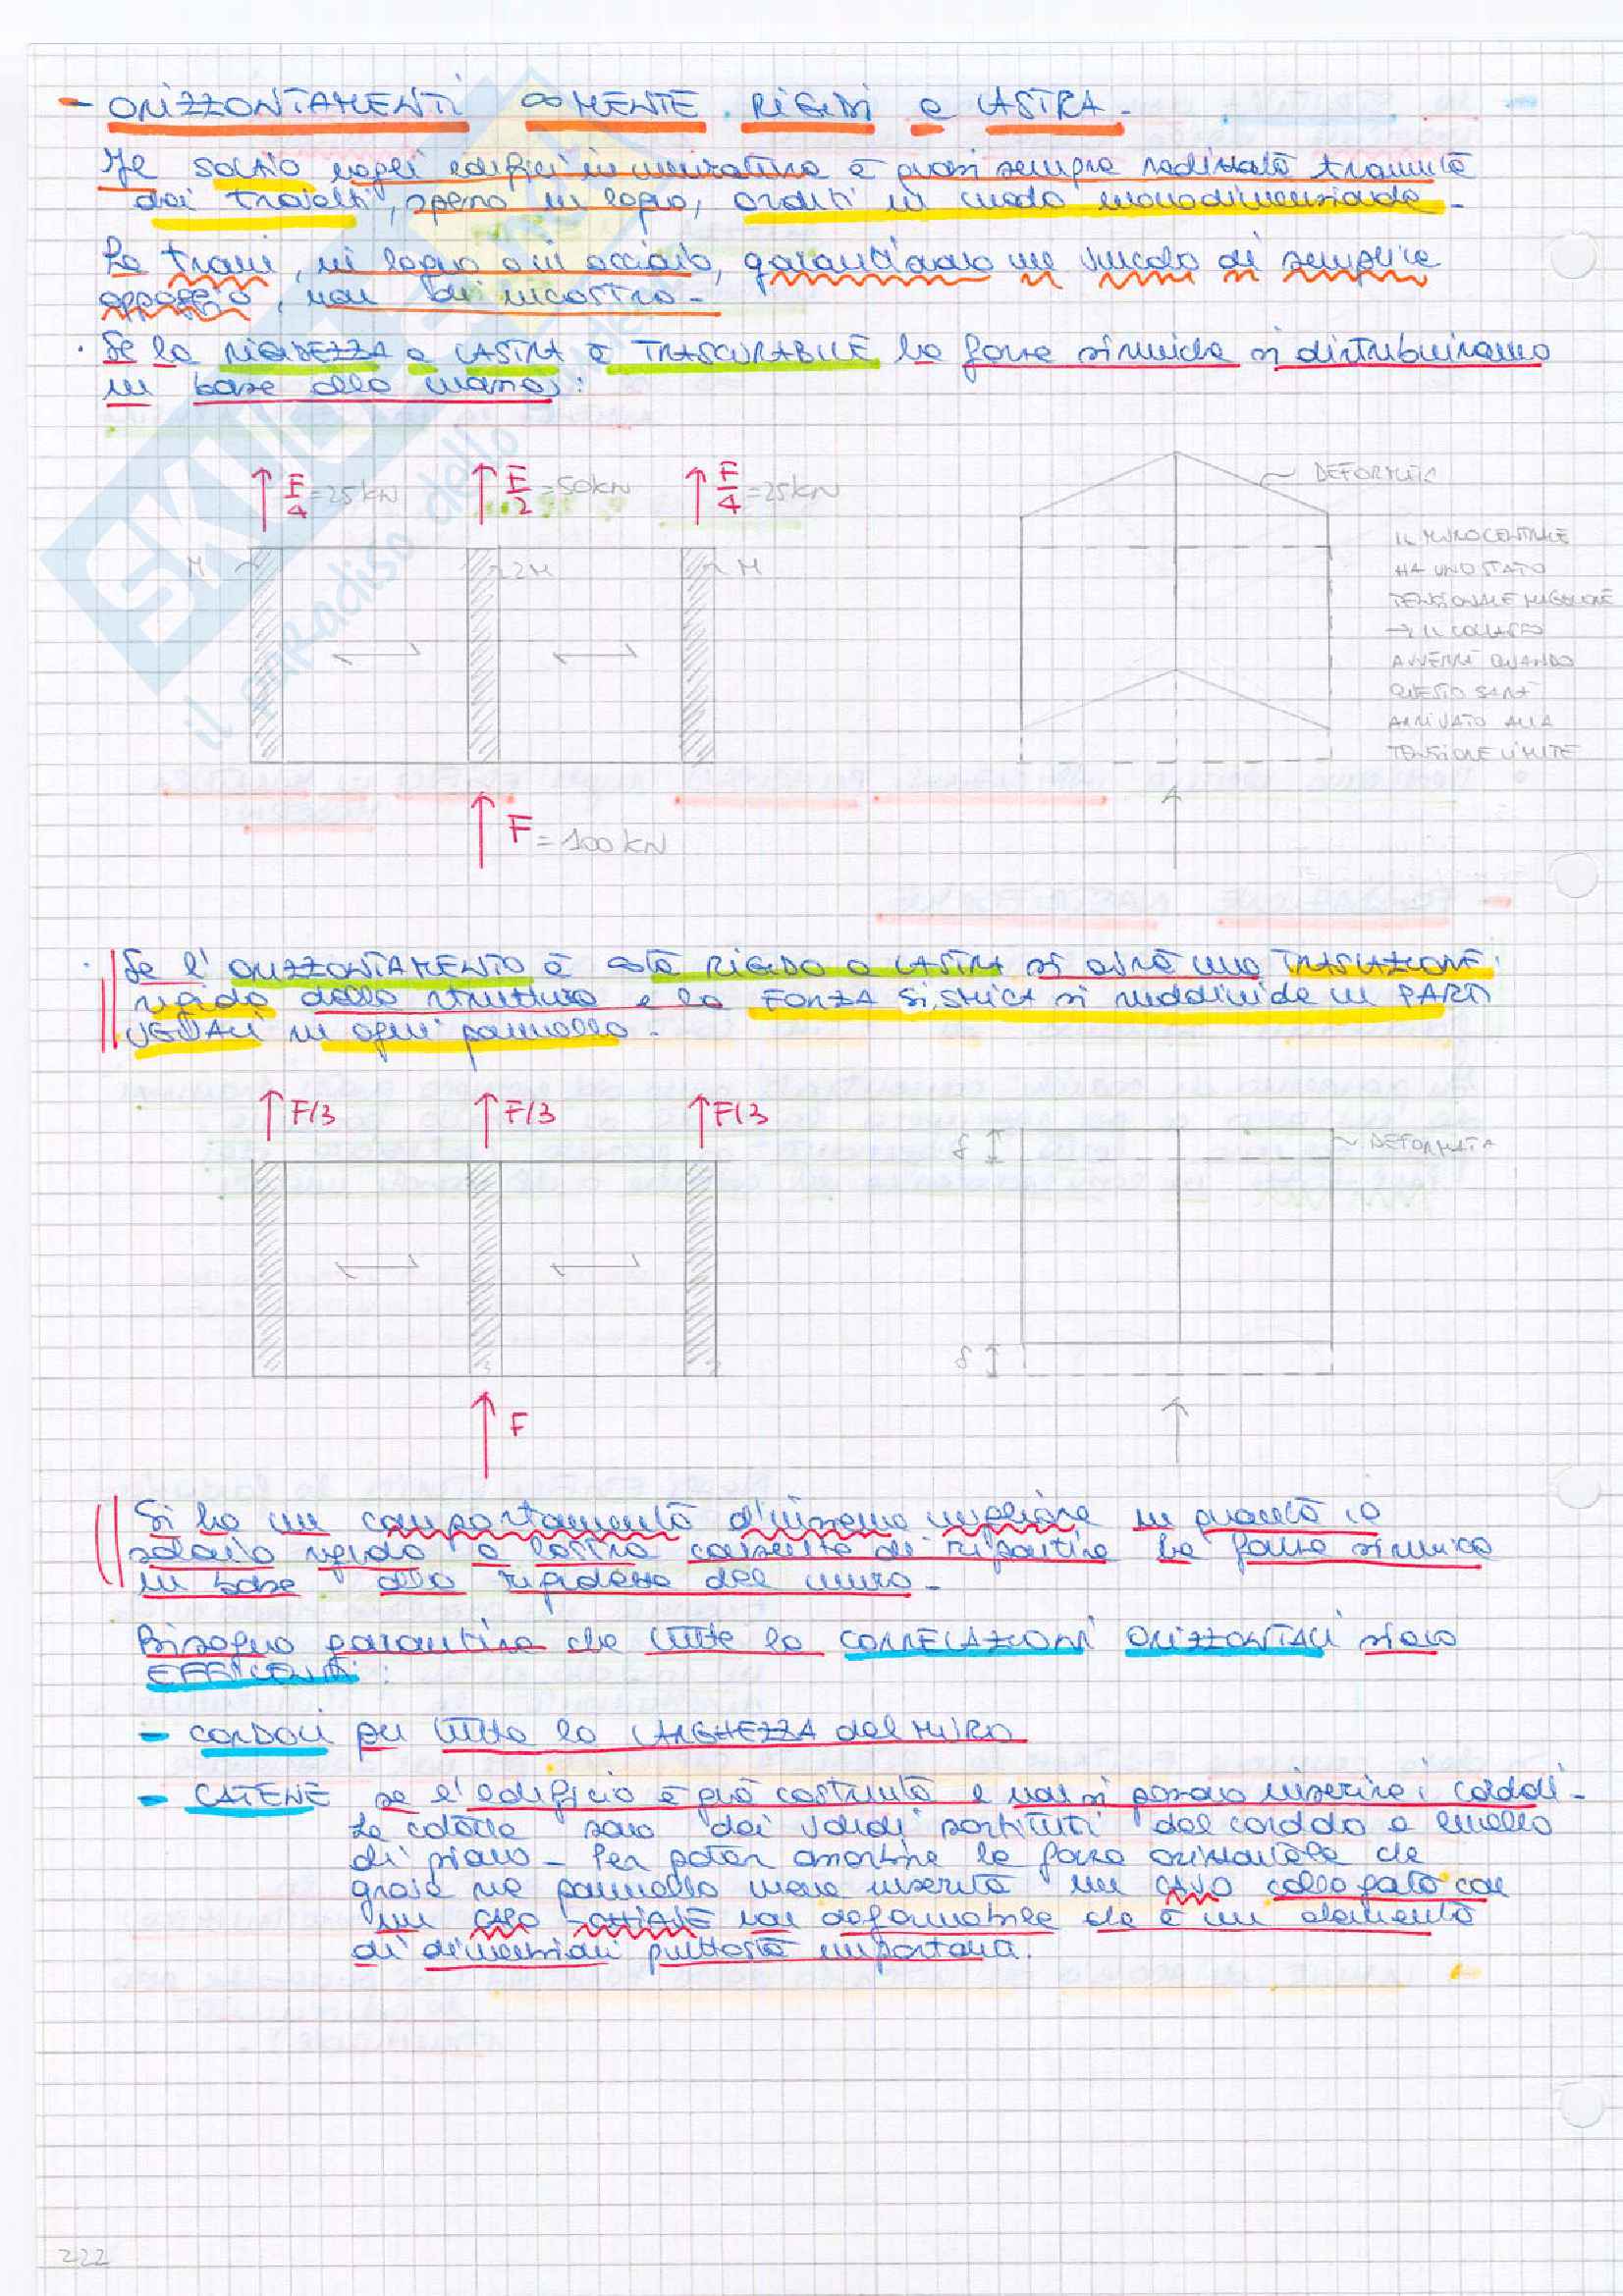 - ORIZZONTAMENTI ∞MENTE RIGIDI a LASTRA -
Il SOLAIO negli edifici in muratura è quasi sempre realizzato tramite
dei travetti, spesso in legno, orditi in modo monodimensionale -
Le travi, in legno o in acciaio, garantivano un vincolo di semplice
appoggio, non di incastro -
· Se la RIGIDEZZA a LASTRA è TRASCURABILE le forze sismiche si distribuiranno
in base alla massa:
F/4 = 25 kN
F/2 = 50 kN
F/4 = 25 kN
DEFORMATA
M
2M
M
IL MURO CENTRALE
HA UNO STATO
TENSIONALE MAGGIORE
→ IL COLLASSO
AVVERRÀ QUANDO
QUESTO SARÀ
ARRIVATO ALLA
TENSIONE LIMITE
F = 100 kN
· Se l'ORIZZONTAMENTO è ∞te RIGIDO a LASTRA si avrà una TRASLAZIONE
rigida della struttura e la FORZA SISMICA si suddivide in PARTI
UGUALI in ogni pannello.
F/3
F/3
F/3
δ
DEFORMATA
δ
F
Si ha un comportamento d'insieme migliore in quanto il
solaio rigido a lastra consente di ripartire le forze sismiche
in base alla rigidezza del muro -
Bisogna garantire che tutte le CORRELAZIONI ORIZZONTALI siano
EFFICIENTI:
- CORDOLI per tutta la LARGHEZZA del MURO
- CATENE se l'edificio è già costruito e non si possono inserire i cordoli -
Le catene sono dei validi sostituti del cordolo a livello
di piano - Per poter assorbire le forze orizzontali che
grava nel pannello viene inserito un CAVO collegato con
un CAPO CHIAVE non deformabile che è un elemento
di dimensioni piuttosto importanti.
222
SKUOLA
il paradiso dello studente